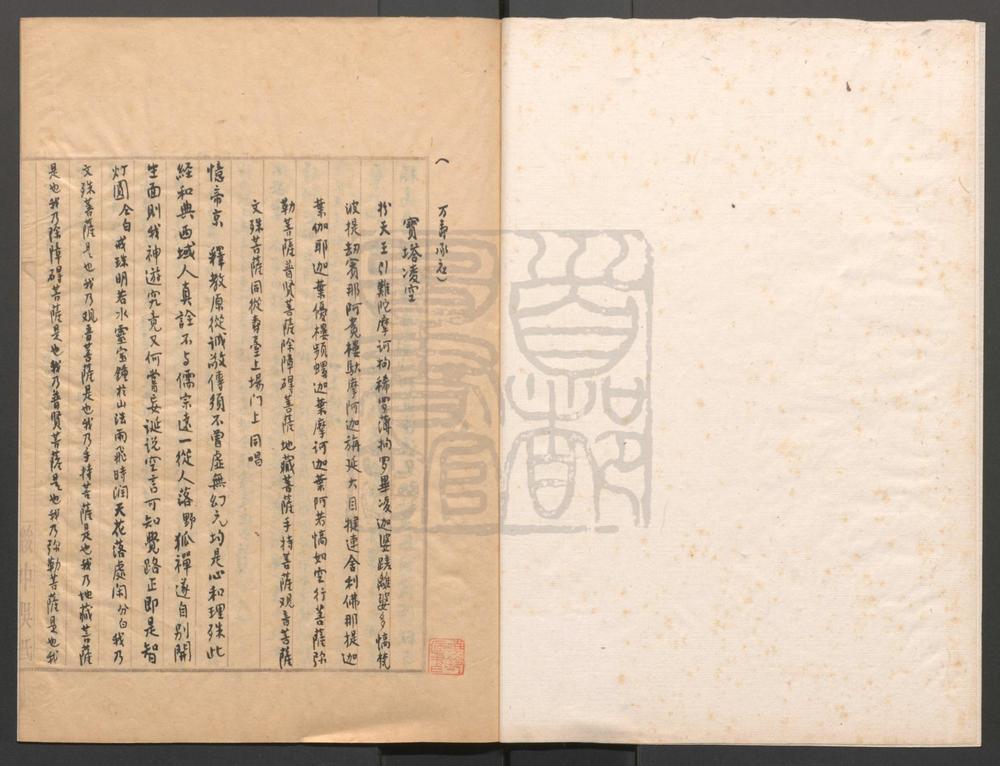 万壽承應
寶塔凌空
扮天王引難陀摩訶拘稀罗薄拘罗畢凌伽婆蹉離婆多憍梵
波提劫賓那阿㝹樓馱摩訶迦旃延大目犍連舍利佛那提迦
葉伽耶迦葉優樓頻螺迦葉摩訶迦葉阿若憍如空行菩薩弥
勒菩薩普贤菩薩除障碍菩薩地藏菩薩手持菩薩观音菩薩
文殊菩薩同從壽臺上場门上 同唱
憶帝京 釋教原從诚敬傳須不曾虛無幻元均是心和理殊此
經和典西域人真詮不与儒宗遠一從人落野狐禪遂自别開
生面則我神遊究竟又何嘗妄诞说空言可知覺路正即是智
灯圓 仝白 戒珠明若水靈宝鐘於山法雨飛時润天花落處闲 分白 我乃
文殊菩薩是也我乃观音菩薩是也我乃手持菩薩是也我乃地藏菩薩
是也我乃除障碍菩薩是也我乃普贤菩薩是也我乃弥勒菩薩是也我